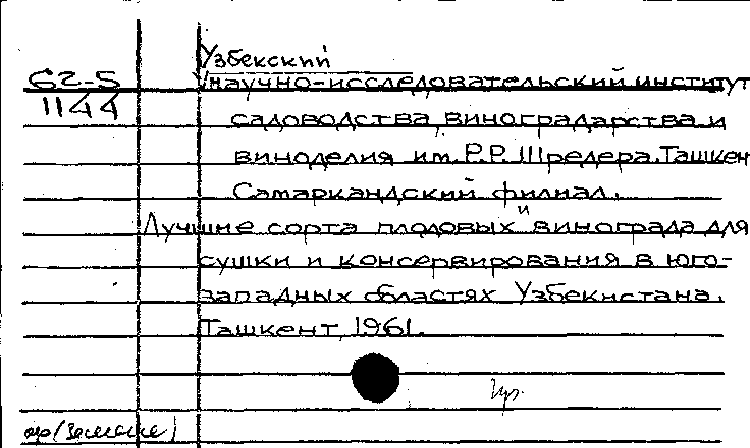 Узбекский
62-5 научно-исследовательский институт
1144 садоводства, виноградарства и
виноделия им. Р.Р. Шредера. Ташкен
Самаркандский филиал.
Лучшие сорта плодовых и винограда для
сушки и консервирования в юго-
западных областях Узбекистана.
Ташкент, 1961.